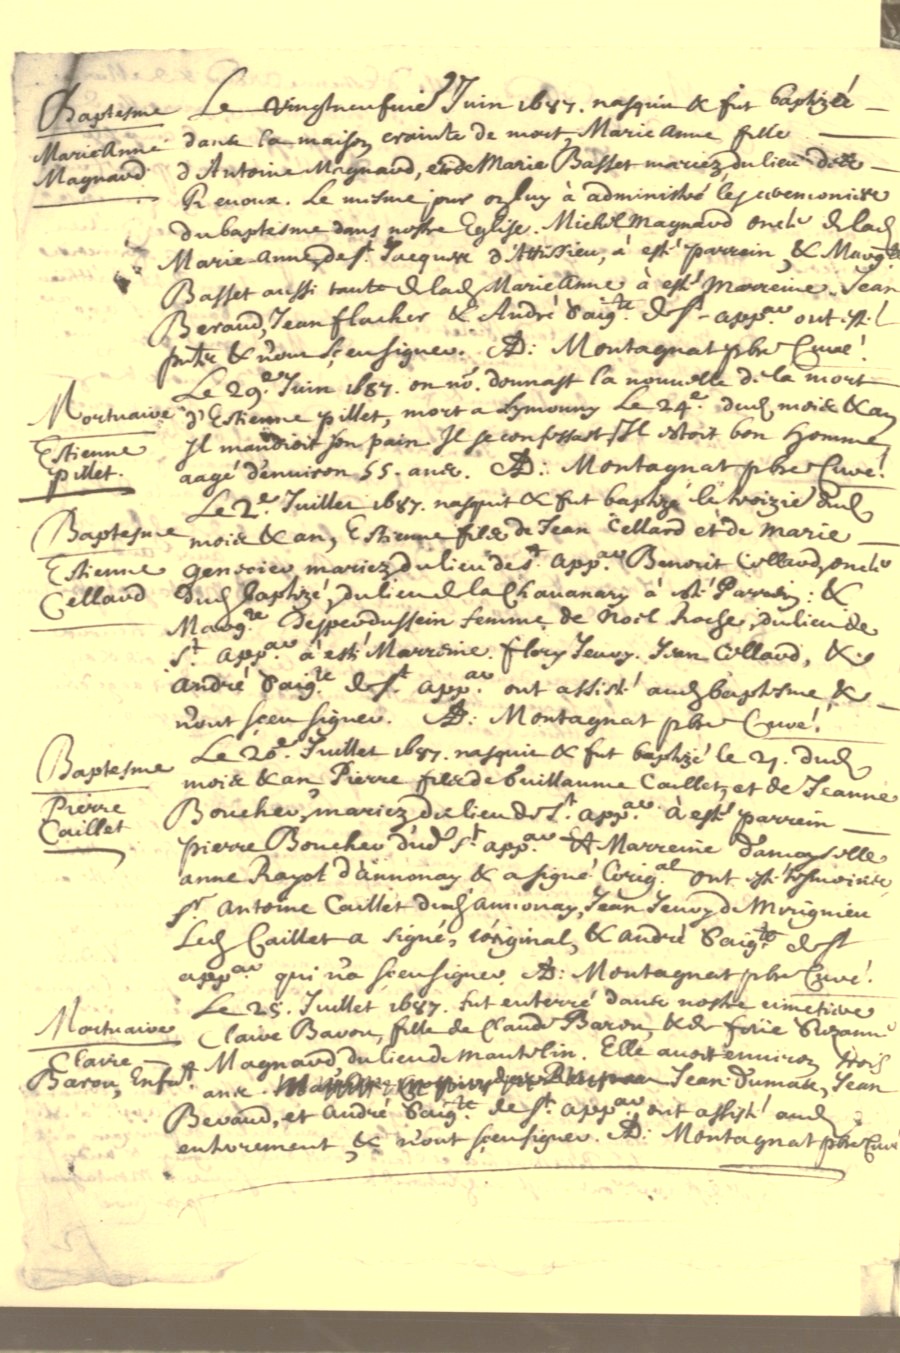 Baptesme
Marie Anne
Magnaud
Le vingtneufvie Juin 1687. nasquit & fut baptizée
dans la maison crainte de mort, Marie Anne fille
d'Antoine Magnaud, et de Marie Basset mariez du lieu de
Renoux. Le mesme jour on luy à administré les ceremonies
du baptesme dans nostre Eglise. Michel Magnaud oncle de lad
Marie-Anne, de st. Jacques d'Attissieu, à esté parrein, & Marg.te
Basset aussi tante de lad Marie Anne à esté Marreine. Jean
Beraud, Jean flacher & André Saig.te de st. app.ar ont esté
pnts & n'ont sçeu signer. AD: Montagnat pbre Curé!
Mortuaire
Estienne
pillet.
Le 29.e Juin 1687. on no. donnast la nouvelle de la mort
d'Estienne pillet, mort a Lymonny Le 24.e dud mois & an
Il mandioit son pain Il se confessast, Il estoit bon homme,
aagé d'environ 55. ans. AD: Montagnat pbre Curé!
Baptesme
Estienne
Cellard
Le 2.e Juillet 1687. nasquit & fut baptizé le troizie dud
mois & an, Estienne fils de Jean Cellard et de Marie
mariez du lieu de st. app.ar Benoit Cellard, oncle
dud baptizé, du lieu de la Chavanary à esté Parrein: &
Marg.te Desperdussein femme de Noël Roche, du lieu de
st. app.ar à esté Marreine. flory Jeury. Jean Cellard, &
André Saig.te de st. app.ar ont assisté aud baptesme &
n'ont sçeu signer. AD: Montagnat pbre Curé!
Baptesme
Pierre
Caillet
Le 20.e Juillet 1687. nasquit & fut baptizé le 21. dud
mois & an Pierre fils de Guillaume Caillet, et de Jeanne
Boucher, mariez du lieu de St. app.ar à esté parrein
pierre Boucher dud St. app.ar & Marreine damoyselle
anne Rayot d'annonay & a signé l'orig.al ont esté tesmoins
sr. Antoine Caillet dud annonay, Jean Jeury de Morignieu
Led Caillet a signé, l'original, & andré Saig.te de st
app.ar qui n'a sçeu signer. AD: Montagnat pbre Curé!
Mortuaire
Claire
Baron, Enfant
Le 25. Juillet 1687. fut enterré dans nostre cimetiere
Claire Baron, fille de Claude Baron, & de füe Suzanne
Magnaud du lieu de Mantelin. Elle avoit environ trois
ans. Jean Dumas, Jean
Beraud, et andré Saig.te de st. app.ar, ont assisté aud
enterement & n'ont sçeu signer. AD: Montagnat pbre Curé